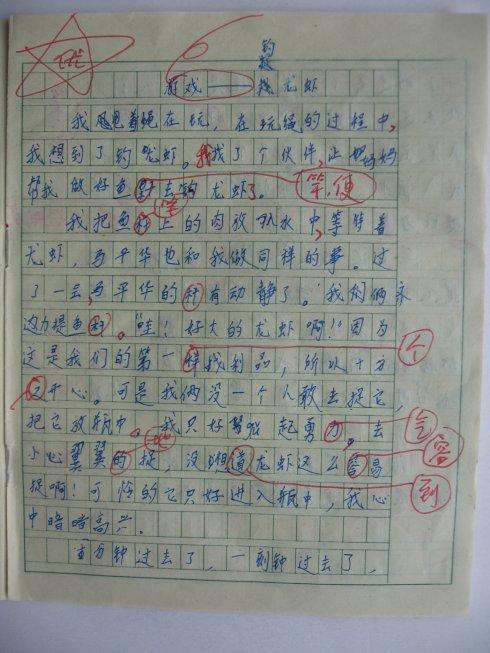 优
钓
游戏——龙虾
我思见着绳在玩，在玩绳的过程中，
我想到了钓龙虾。我找了个伙伴，让妈妈
帮我做好鱼去钓龙虾了。
竿，便
竿
我把鱼上的肉放水中，等待着
龙虾，马平华也和我做同样的事。过
了一会，马平华的有动静了。我们俩永
力提鱼。"哇！好大的龙虾啊！"因为
这是我们的第一样找利品，所以十方
个
又开心。可是我俩没一个人敢去捉它，
把它放瓶中。我只好起勇力。去
气
地
小心翼翼的捉，没想道龙虾这么容易
容
捉啊！可怜的它只好进入瓶中，我心
到
中暗暗高兴。
分钟过去了，一刻钟过去了，